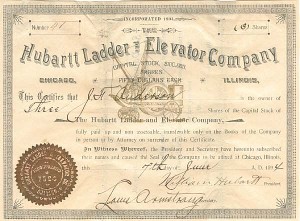 INCORPORATED 1891
THE
Hubartt Ladder and Elevator Company
CAPITAL STOCK, $50,000
SHARES
FIFTY DOLLARS EACH
CHICAGO, ILLINOIS.
This Certifies that J. A. is the owner
of Three Shares of the Capital Stock of
The Hubartt Ladder and Elevator Company,
fully paid up and non assessable, transferable only on the Books of the Company
in person or by Attorney on surrender of this Certificate.
In Witness Whereof, the President and Secretary have hereunto subscribed
their names and caused the Seal of the Company to be affixed at Chicago, Illinois,
This 7th day of June A.D. 189
William Hubartt
President